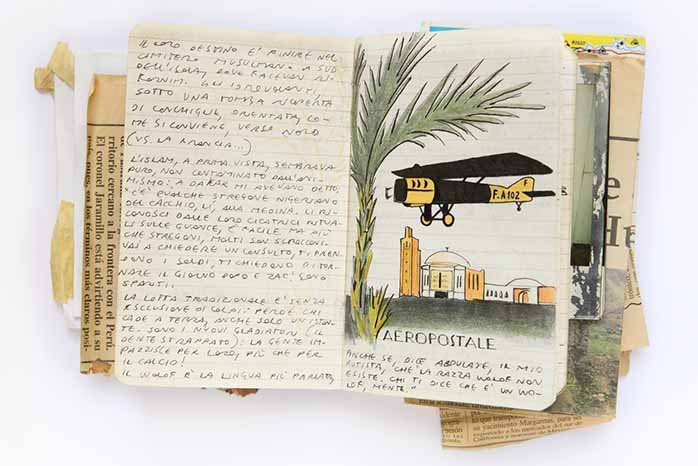 IL LORO DESTINO E' FINIRE NEL
CIMITERO MUSULMANO A SUD
DELL'ISOLA, DOVE
GLI IDROVOLANTI,
SOTTO UNA TOMBA RICOPERTA
DI CONCHIGLIE, ORIENTATA, CO-
ME SI CONVIENE, VERSO NORD
(VS. LA FRANCIA...)
L'ISLAM, A PRIMA VISTA, SEMBRAVA
PURO, NON CONTAMINATO DALL'ANI-
MISMO: A DAKAR MI AVEVANO DETTO:
"C'E' QUALCHE STREGONE NIGERIANO
DEL CALCIO, LI', ALLA MEDINA. LI RI-
CONOSCI DALLE LORO CICATRICI RITUA-
LI SULLE GUANCE, E' FACILE. MA PIU'
CHE STREGONI, MOLTI SON
VAI A CHIEDERE UN CONSULTO, TI PREN-
DONO I SOLDI, TI CHIEDONO DI TOR-
NARE IL GIORNO DOPO E ZAC! SONO
SPARITI.
LA LOTTA TRADIZIONALE E' SENZA
ESCLUSIONE DI COLPI: PERDE CHI
CADE A TERRA, ANCHE SOLO UN ISTAN-
TE. SONO I NUOVI GLADIATORI (IL
DENTE STRAPPATO): LA GENTE IM-
PAZZISCE PER LORO, PIU' CHE PER
IL CALCIO!
IL WOLOF E' LA LINGUA PIU' PARLATA,
F
F.A102
AEROPOSTALE
ANCHE SE, DICE ABDULAYE, IL MIO
AUTISTA, "CHE LA RAZZA WOLOF NON
ESISTE. CHI TI DICE CHE E' UN WO-
LOF, MENTE."
rritorio cercano a
la frontera con el Perú.
El coronel Jaramillo está advirtiendo a su
en los términos más claros posi-